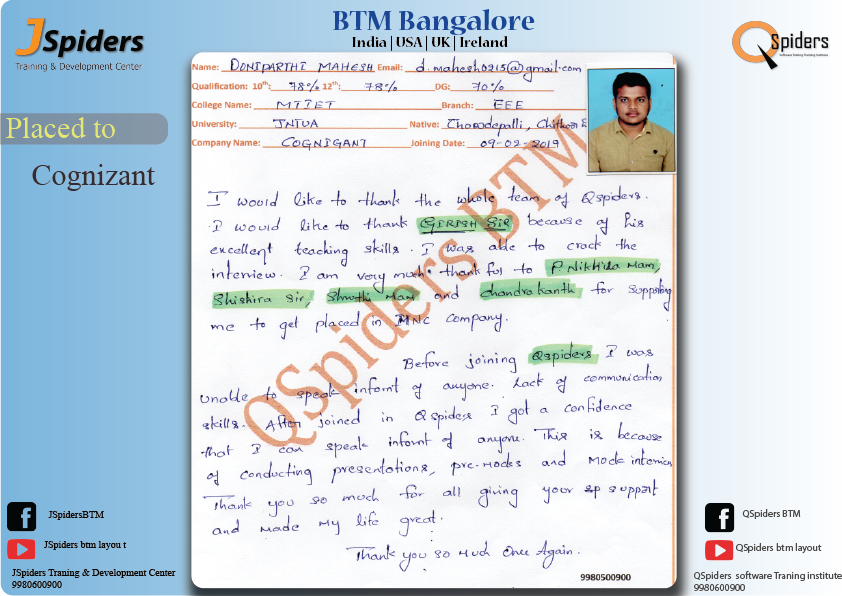 JSpiders
Training & Development Center
BTM Bangalore
India | USA | UK | Ireland
QSpiders
Software Testing Training Institute
Placed to
Cognizant
Name: DONIPARTHI MAHESH Email: d.mahesh0215@gmail.com
Qualification: 10th: 78% 12th: 78% DG: 70%
College Name: MTIET Branch: EEE
University: JNTUA Native: Chowdepalli,
Company Name: COGNIGANT Joining Date: 09-02-2019
I would like to thank the whole team of Qspiders.
I would like to thank GIRISH Sir because of his
excellent teaching skills. I was able to crack the
interview. I am very much thank ful to P Nikhila Mam,
Shishira Sir, Shruthi Mam and Chandrakanth for supporting
me to get placed in MNC company.
Before joining Qspiders I was
unable to speak infornt of anyone. Lack of communication
skills. After joined in Qspiders I got a confidence
that I can speak infornt of anyone. This is because
of conducting presentations, pre-mocks and Mock interview
Thank you so much for all giving your support
and made my life great.
Thank you so Much Once Again.
QSpiders BTM
9980500900
JSpidersBTM
JSpiders btm layou t
JSpiders Traning & Development Center
9980600900
QSpiders BTM
QSpiders btm layout
QSpiders software Traning institute
9980600900